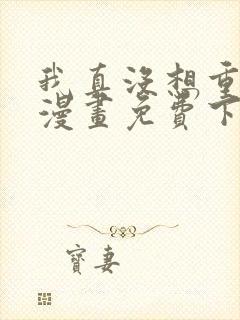 我真没想重
漫畫免費下
寶妻